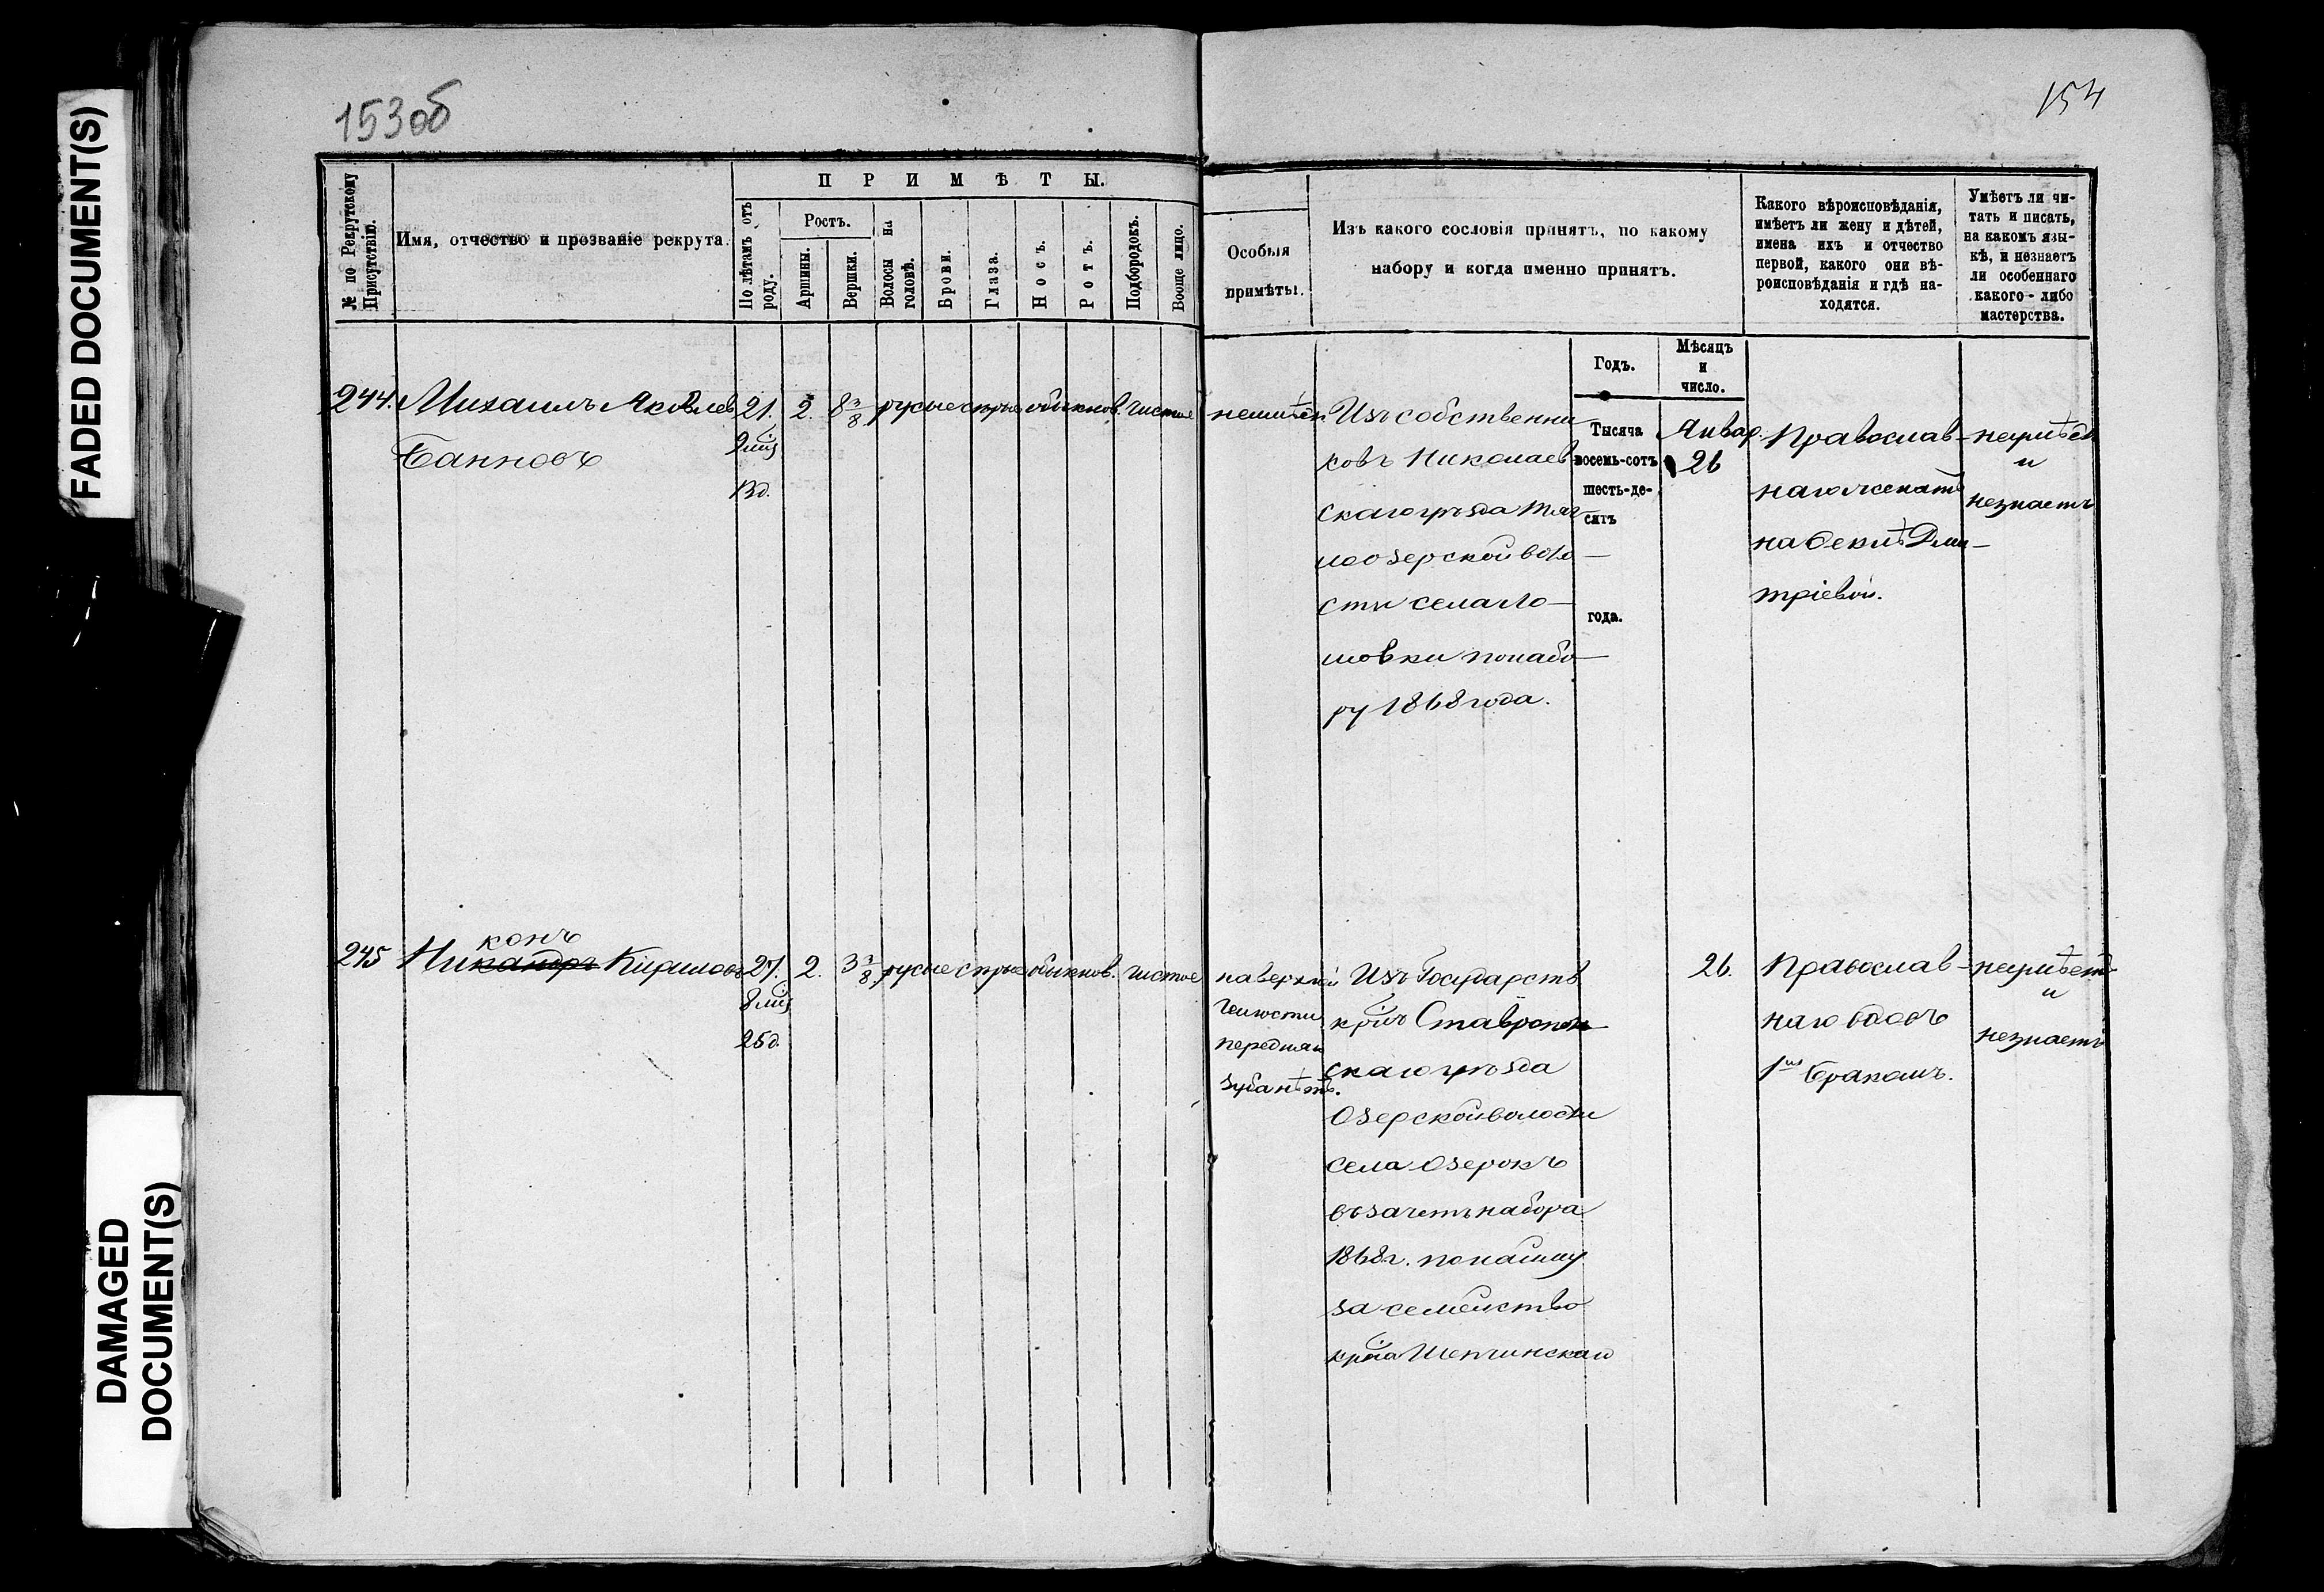 FADED DOCUMENT(S)
DAMAGED
DOCUMENT(S)
153об
154
№ по Рекрутскому
Присутствію.
Имя, отчество и прозваніе рекрута.
ПРИМѢТЫ.
По лѣтамъ отъ
роду.
Ростъ.
Аршины.
Вершки.
Волосы на
головѣ.
Брови.
Глаза.
Носъ.
Ротъ.
Подбородокъ.
Вообще лицо.
Особыя
примѣты.
Изъ какого сословія принятъ, по какому
набору и когда именно принятъ.
Какого вѣроисповѣданія,
имѣетъ ли жену и дѣтей,
имена ихъ и отчество
первой, какого они вѣ-
роисповѣданія и гдѣ на-
ходятся.
Умѣетъ ли чи-
тать и писать,
на какомъ язы-
кѣ, и незнаетъ
ли особеннаго
какого-либо
мастерства.
Годъ.
Мѣсяцъ
и
число.
Тысяча
восемь-сотъ
шесть-де-
сятъ
года.
244. Михаилъ Яковлев
Банновъ
21.
9 мц
13 д.
2. 8 3/8 русые сѣрые обыкнов. чистое
неимѣет.
Изъ собственни
ковъ Николаев
скаго уѣзда
озерской воло
сти села Ло
мовки по набо
ру 1868 года.
Январ.
26
Православ-
наго женатъ
на Феклѣ Дми-
тріевой.
неумѣетъ
и
незнаетъ
245 Никаноръ Кириловъ
конъ
27.
8 мц
25 д.
2. 3 3/8 русые сѣрые обыкнов. чистое
на верхней
челюсти
передняго
зуба нѣтъ.
Изъ Государств
крнъ Ставрополь
скаго уѣзда
Озерской волости
села Озерокъ
въ зачетъ набора
1868 г. по найму
за семейство
крна
26.
Православ-
наго вдовъ
1мъ бракомъ.
неумѣетъ
и
незнаетъ